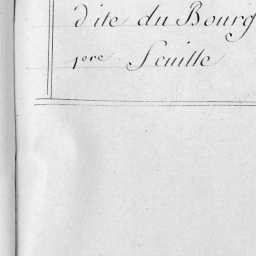 dite du Bourg
1ere feuille